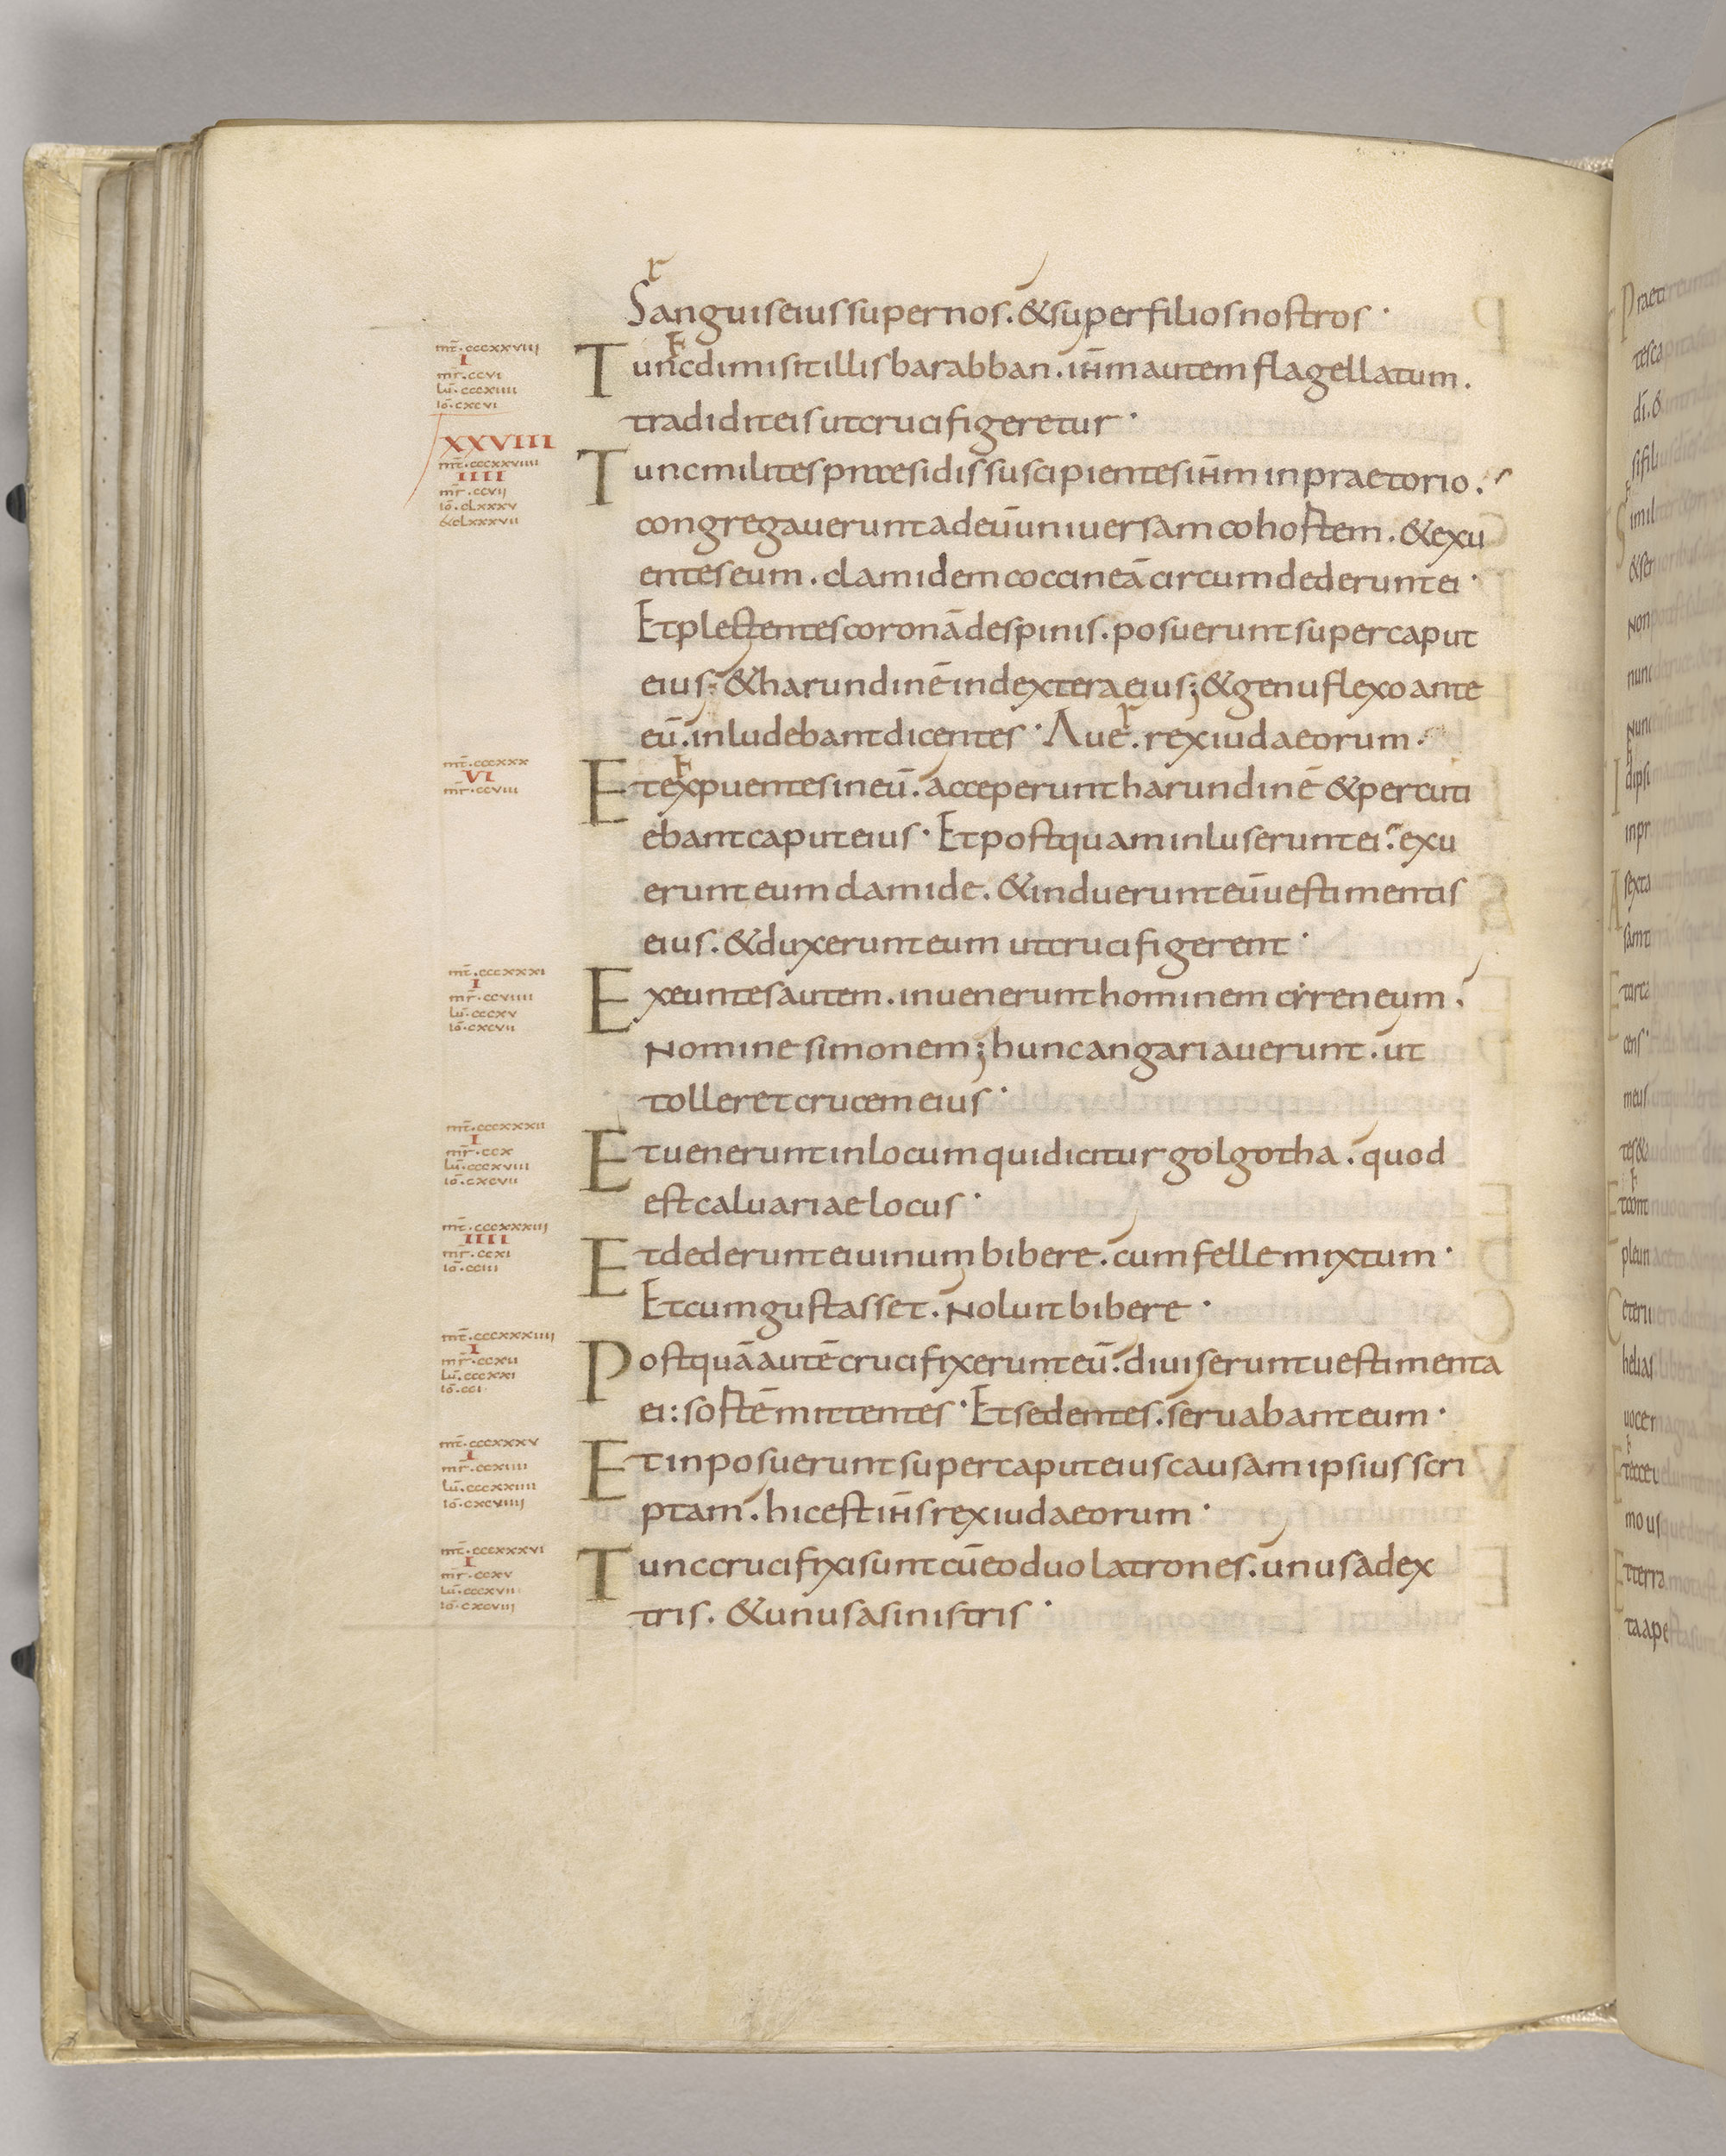 Sanguis eius super nos. & super filios nostros.
mt̄. cccxxviii
I
mr̄. ccvi
lū. cccxiiii
iō. cxcvi
Tunc dimisit illis barabban. ih̄m autem flagellatum.
tradidit eis ut crucifigeretur.
XXVIII
mt̄. cccxxviiii
IIII
mr̄. ccvii
iō. clxxxv
& clxxxvii
Tunc milites praesidis suscipientes ih̄m in praetorio.
congregauerunt ad eū uniuersam cohortem. & exu
entes eum. clamidem coccineā circumdederunt ei.
Et plectentes coronā de spinis. posuerunt super caput
eius; & harundinē in dextera eius; & genu flexo ante
eū. inludebant dicentes. Aue. rex iudaeorum.
mt̄. cccxxx
VI
mr̄. ccviii
Et expuentes in eū. acceperunt harundinē & percuti
ebant caput eius. Et postquam inluserunt ei. exu
erunt eum clamide. & induerunt eū uestimentis
eius. & duxerunt eum ut crucifigerent.
mt̄. cccxxxi
I
mr̄. ccviiii
lū. cccxv
iō. cxcvii
Exeuntes autem. inuenerunt hominem cyreneum.
Nomine simonem; hunc angariauerunt. ut
tolleret crucem eius.
mt̄. cccxxxii
I
mr̄. ccx
lū. cccxviii
iō. cxcvii
Et uenerunt in locum qui dicitur golgotha. quod
est caluariae locus.
mt̄. cccxxxiii
IIII
mr̄. ccxi
iō. cciii
Et dederunt ei uinum bibere. cum felle mixtum.
Et cum gustasset. Noluit bibere.
mt̄. cccxxxiiii
I
mr̄. ccxii
lū. cccxxi
iō. cci
Postquā autē crucifixerunt eū. diuiserunt uestimenta
ei: sortē mittentes. Et sedentes. seruabant eum.
mt̄. cccxxxv
I
mr̄. ccxiiii
lū. cccxxiiii
iō. cxcviiii
Et inposuerunt super caput eius causam ipsius scri
ptam. hic est ih̄s rex iudaeorum.
mt̄. cccxxxvi
I
mr̄. ccxv
lū. cccxvii
iō. cxcviii
Tunc crucifixi sunt cū eo duo latrones. unus a dex
tris. & unus a sinistris.